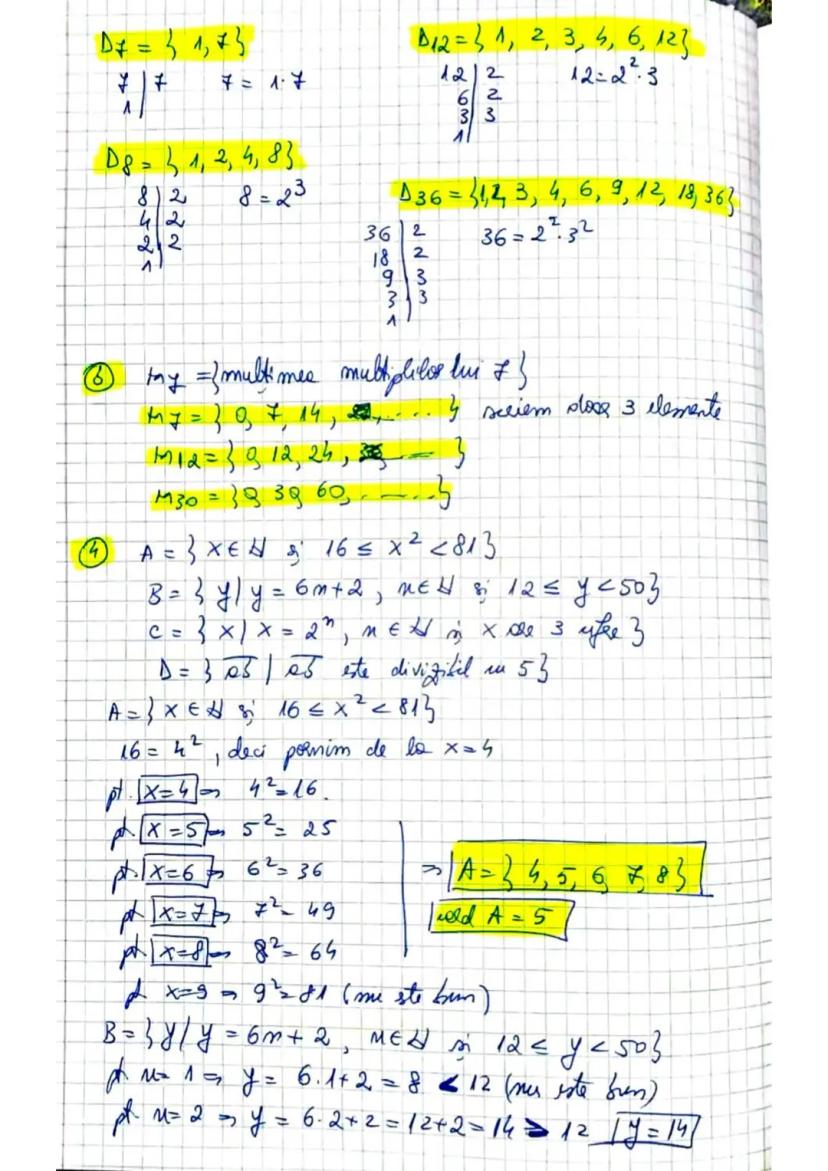 D7 = { 1, 7}
7 | 7 7 = 1·7
1 |
D8 = { 1, 2, 4, 8}
8 | 2 8 = 2³
4 | 2
2 | 2
1 |
D12 = { 1, 2, 3, 4, 6, 12}
12 | 2 12 = 2²·3
6 | 2
3 | 3
1 |
D36 = {1, 2, 3, 4, 6, 9, 12, 18, 36}
36 | 2 36 = 2²·3²
18 | 2
9 | 3
3 | 3
1 |
M7 = {mulțimea multiplilor lui 7}
M7 = { 0, 7, 14, ....} scriem doar 3 elemente
M12 = { 0, 12, 24, ... }
M30 = { 0, 30, 60, ....}
④ A = { x∈N și 16 ≤ x² < 81}
B = { y / y = 6n+2, n∈N și 12 ≤ y < 50}
C = { x / x = 2ⁿ, n∈N și x are 3 cifre }
D = { ab | ab este divizibil cu 5}
A = { x∈N și 16 ≤ x² < 81}
16 = 4², deci pornim de la x=4
pt. x=4 ⇒ 4²=16.
pt x=5 ⇒ 5²= 25
pt. x=6 ⇒ 6²= 36
pt x=7 ⇒ 7²= 49
pt x=8 ⇒ 8²= 64
⇒ A= { 4, 5, 6, 7, 8}
card A = 5
pt x=9 ⇒ 9²=81 (nu este bun)
B = { y / y = 6n+2, n∈N și 12 ≤ y < 50}
pt. n= 1 ⇒ y = 6·1+2 = 8 < 12 (nu este bun)
pt. n= 2 ⇒ y = 6·2+2 = 12+2 = 14 > 12 y = 14